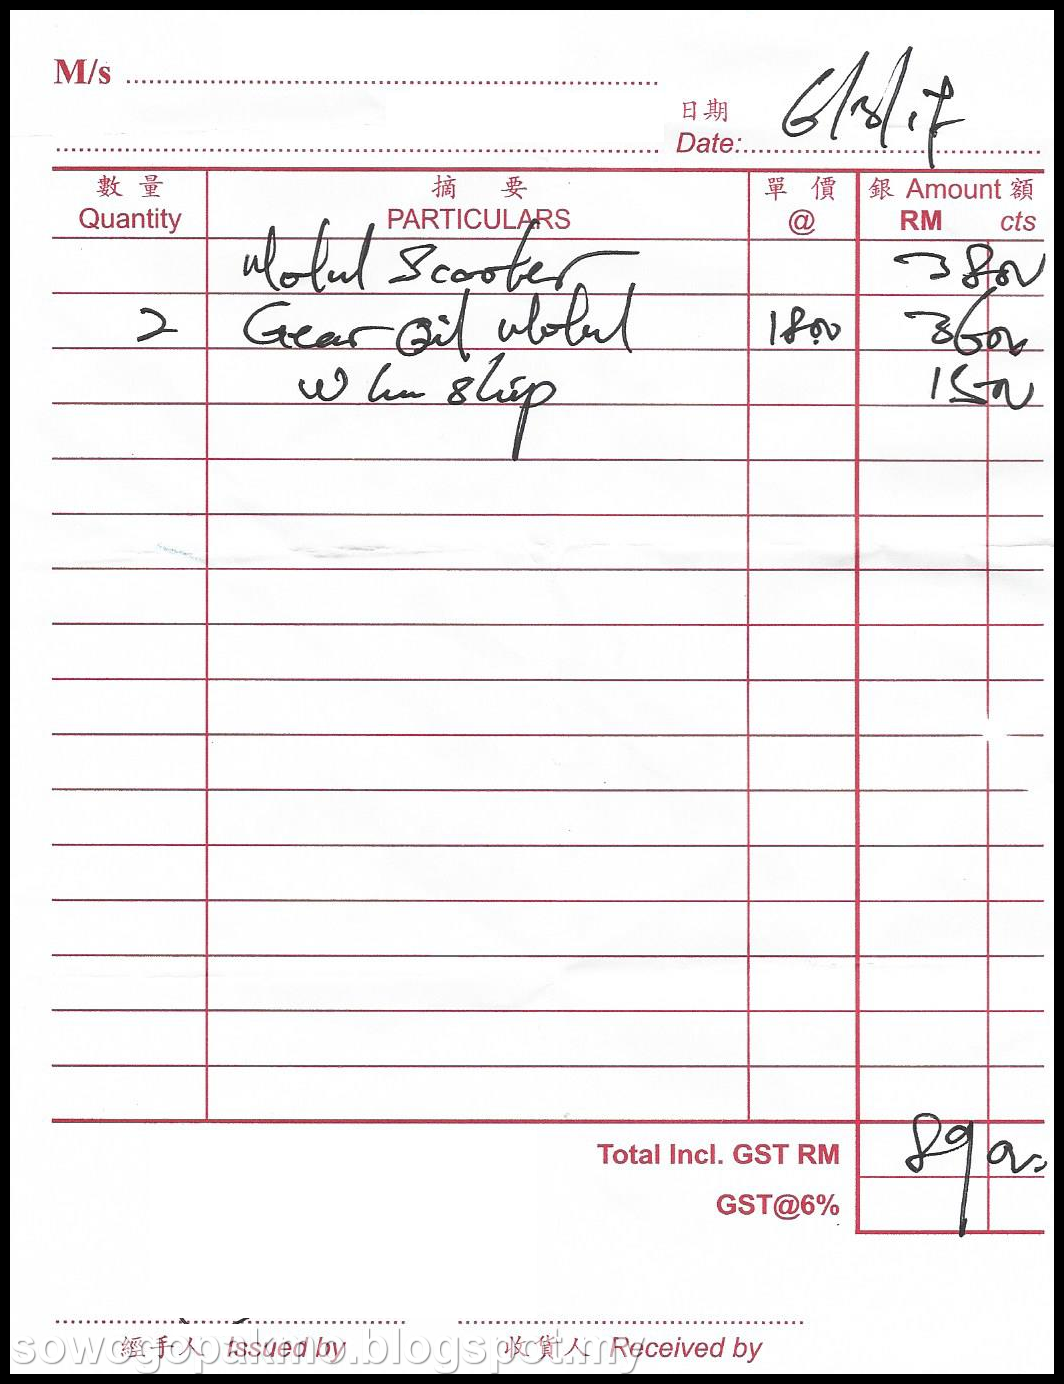 M/s
日期
Date: 6/3/17
數量 摘要 單價 銀 Amount 額
Quantity PARTICULARS @ RM cts
Motul Scooter 38 00
2 Gear Oil Motul 18 00 36 00
W km ship 15 00
Total Incl. GST RM 89 00
GST@6%
經手人 Issued by 收貨人 Received by
sowogopakmo.blogspot.my